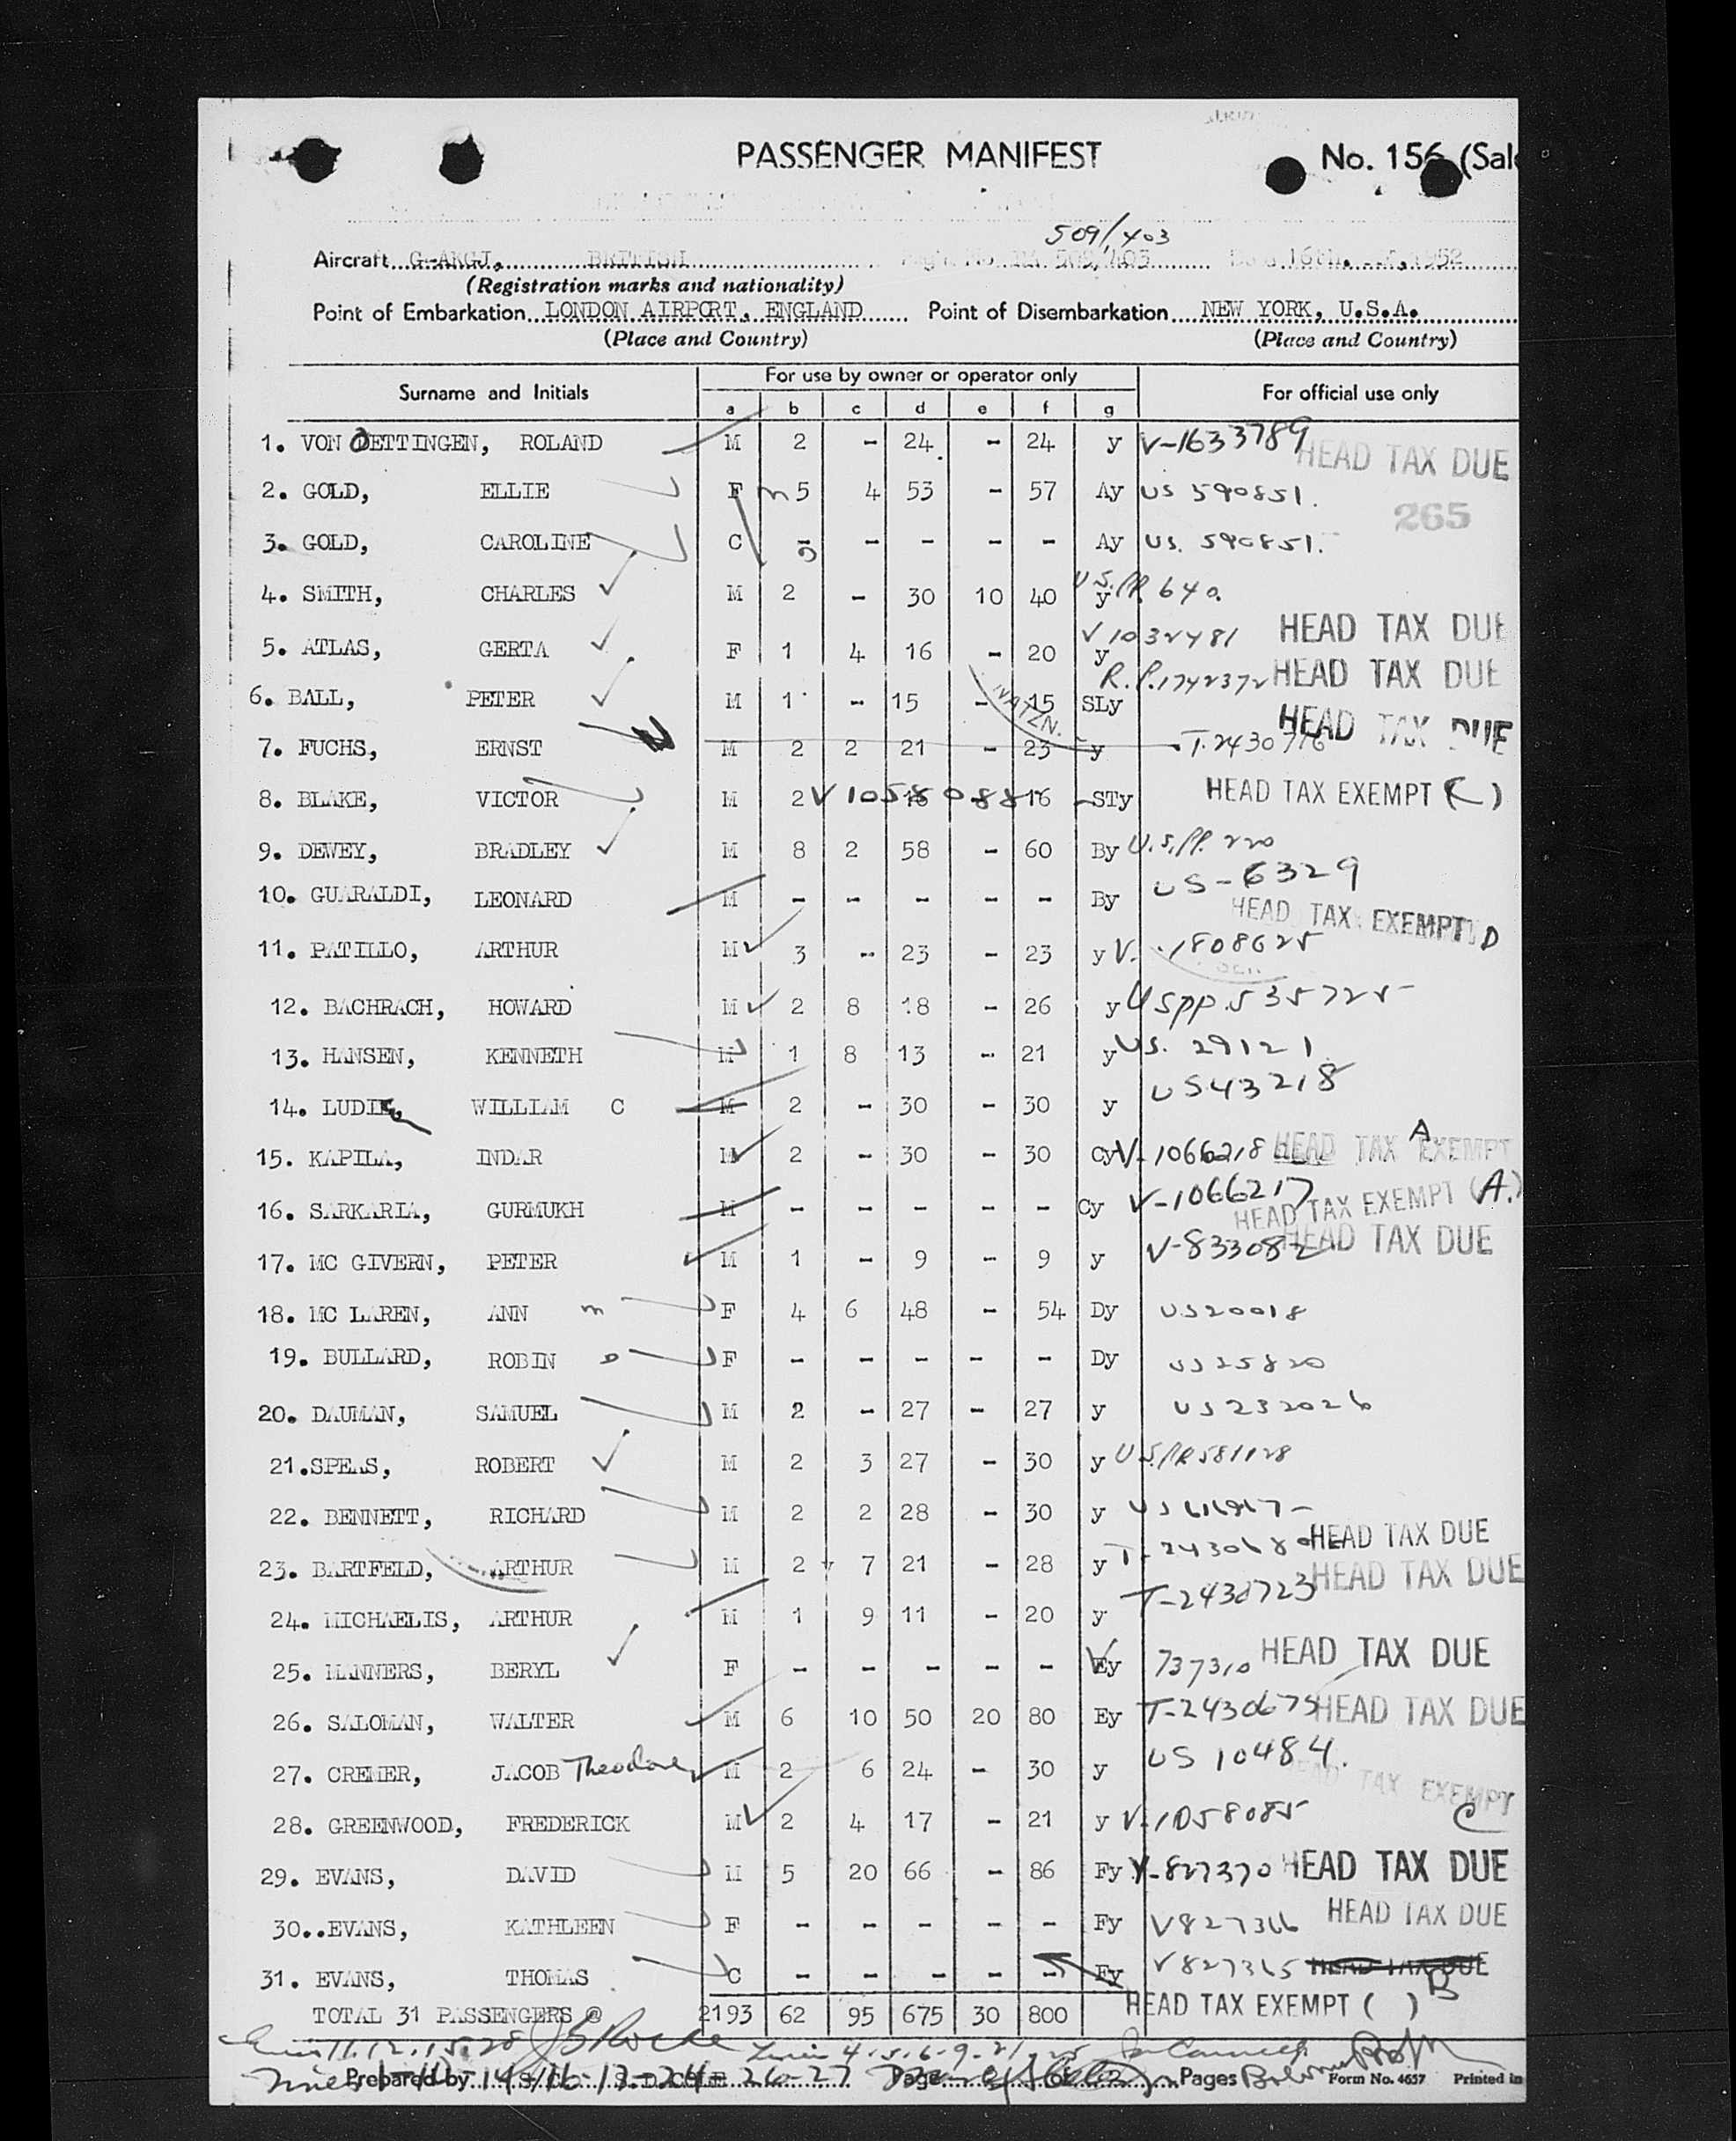 PASSENGER MANIFEST No. 156 (Sal
509/403
Aircraft G-AKGJ, BRITISH 509/403 16th. 1952
(Registration marks and nationality)
Point of Embarkation LONDON AIRPORT, ENGLAND Point of Disembarkation NEW YORK, U.S.A.
(Place and Country) (Place and Country)
Surname and Initials For use by owner or operator only For official use only
a b c d e f g
1. VON OETTINGEN, ROLAND M 2 - 24. - 24 y V-1633789 HEAD TAX DUE
2. GOLD, ELLIE F m 5 4 53 - 57 Ay US 590851.
265
3. GOLD, CAROLINE C - - - - - Ay US. 590851.
4. SMITH, CHARLES M 2 - 30 10 40 y U.S.PP. 640.
HEAD TAX DUE
5. ATLAS, GERTA F 1 4 16 - 20 y V1032481
HEAD TAX DUE
6. BALL, PETER M 1 - 15 - 15 SLy R.P.1742372
HEAD TAX DUE
7. FUCHS, ERNST M 2 2 21 - 23 y T.2430716
8. BLAKE, VICTOR M 2 V1058088 16 STy HEAD TAX EXEMPT (C)
9. DEWEY, BRADLEY M 8 2 58 - 60 By U.S.PP. 220
10. GUARALDI, LEONARD M - - - - - By US-6329
HEAD TAX EXEMPT D
11. PATILLO, ARTHUR M 3 - 23 - 23 y V.1808625
12. BACHRACH, HOWARD M 2 8 18 - 26 y USpp.535725
13. HANSEN, KENNETH M 1 8 13 - 21 y US. 29121
14. LUDI WILLIAM C M 2 - 30 - 30 y US43218
15. KAPILA, INDAR M 2 - 30 - 30 Cy V-1066218 HEAD TAX EXEMPT A
16. SARKARIA, GURMUKH M - - - - - Cy V-1066217
HEAD TAX EXEMPT (A.)
17. MC GIVERN, PETER M 1 - 9 - 9 y V-833082 HEAD TAX DUE
18. MC LAREN, ANN m F 4 6 48 - 54 Dy US20018
19. BULLARD, ROBIN F - - - - - Dy US25820
20. DAUMAN, SAMUEL M 2 - 27 - 27 y US232026
21.SPEAS, ROBERT M 2 3 27 - 30 y U.S.PP.581128
22. BENNETT, RICHARD M 2 2 28 - 30 y US
HEAD TAX DUE
23. BARTFELD, ARTHUR M 2 7 21 - 28 y HEAD TAX DUE
24. MICHAELIS, ARTHUR M 1 9 11 - 20 y T-2430723
25. MANNERS, BERYL F - - - - - Ey 737310 HEAD TAX DUE
26. SALOMAN, WALTER M 6 10 50 20 80 Ey T-2430675 HEAD TAX DUE
27. CREMER, JACOB Theodore M 2 6 24 - 30 y US 10484.
HEAD TAX EXEMPT
28. GREENWOOD, FREDERICK M 2 4 17 - 21 y V.1058085 C
29. EVANS, DAVID M 5 20 66 - 86 Fy V-827370 HEAD TAX DUE
30..EVANS, KATHLEEN F - - - - - Fy V827366 HEAD TAX DUE
31. EVANS, THOMAS C - - - - - Fy V827365 HEAD TAX DUE
TOTAL 31 PASSENGERS @ 2193 62 95 675 30 800 HEAD TAX EXEMPT ( ) B
Prepared by Page of 2 Pages Form No. 4657 Printed in